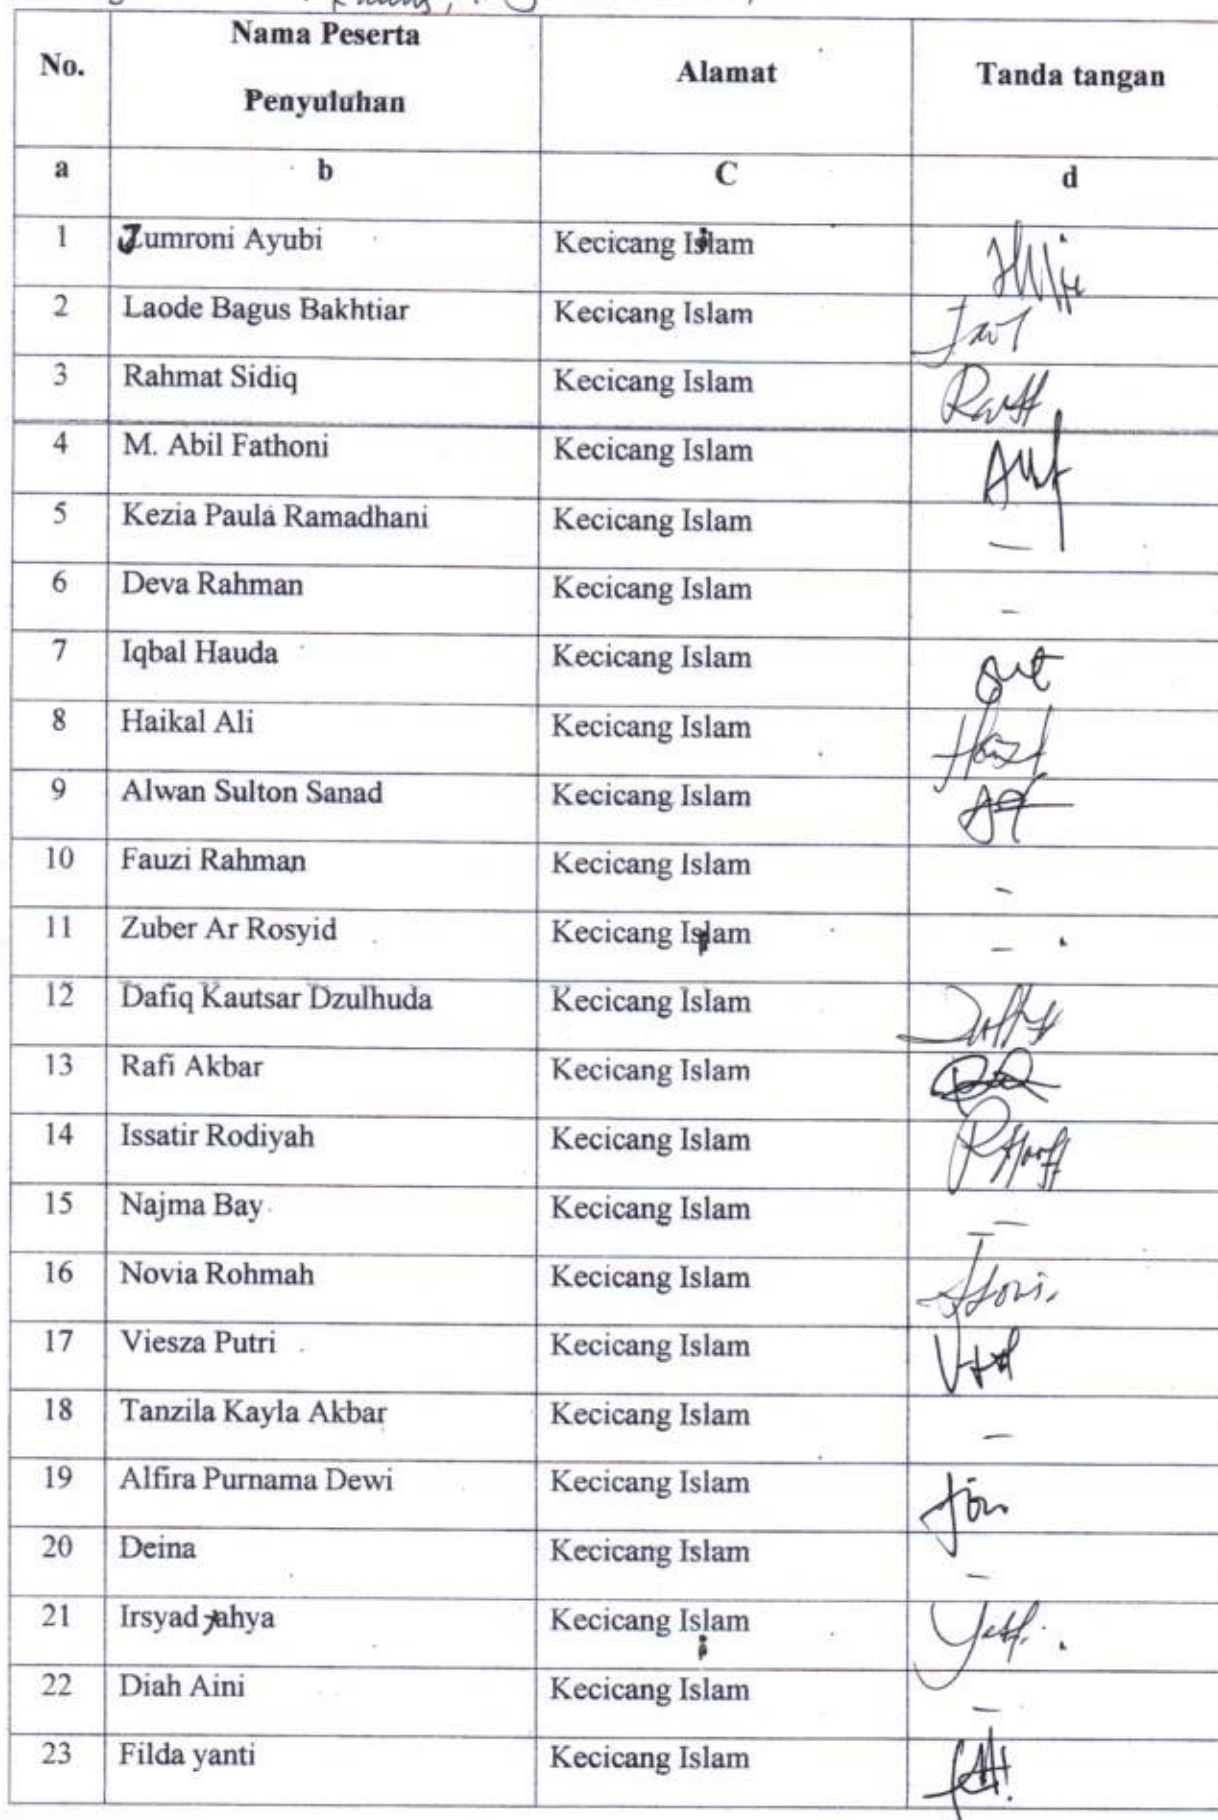 No. Nama Peserta Penyuluhan Alamat Tanda tangan
a b C d
1 Jumroni Ayubi Kecicang Islam
2 Laode Bagus Bakhtiar Kecicang Islam
3 Rahmat Sidiq Kecicang Islam
4 M. Abil Fathoni Kecicang Islam
5 Kezia Paula Ramadhani Kecicang Islam –
6 Deva Rahman Kecicang Islam –
7 Iqbal Hauda Kecicang Islam
8 Haikal Ali Kecicang Islam
9 Alwan Sulton Sanad Kecicang Islam
10 Fauzi Rahman Kecicang Islam –
11 Zuber Ar Rosyid Kecicang Islam –
12 Dafiq Kautsar Dzulhuda Kecicang Islam
13 Rafi Akbar Kecicang Islam
14 Issatir Rodiyah Kecicang Islam
15 Najma Bay Kecicang Islam –
16 Novia Rohmah Kecicang Islam
17 Viesza Putri Kecicang Islam
18 Tanzila Kayla Akbar Kecicang Islam –
19 Alfira Purnama Dewi Kecicang Islam
20 Deina Kecicang Islam –
21 Irsyad yahya Kecicang Islam
22 Diah Aini Kecicang Islam –
23 Filda yanti Kecicang Islam